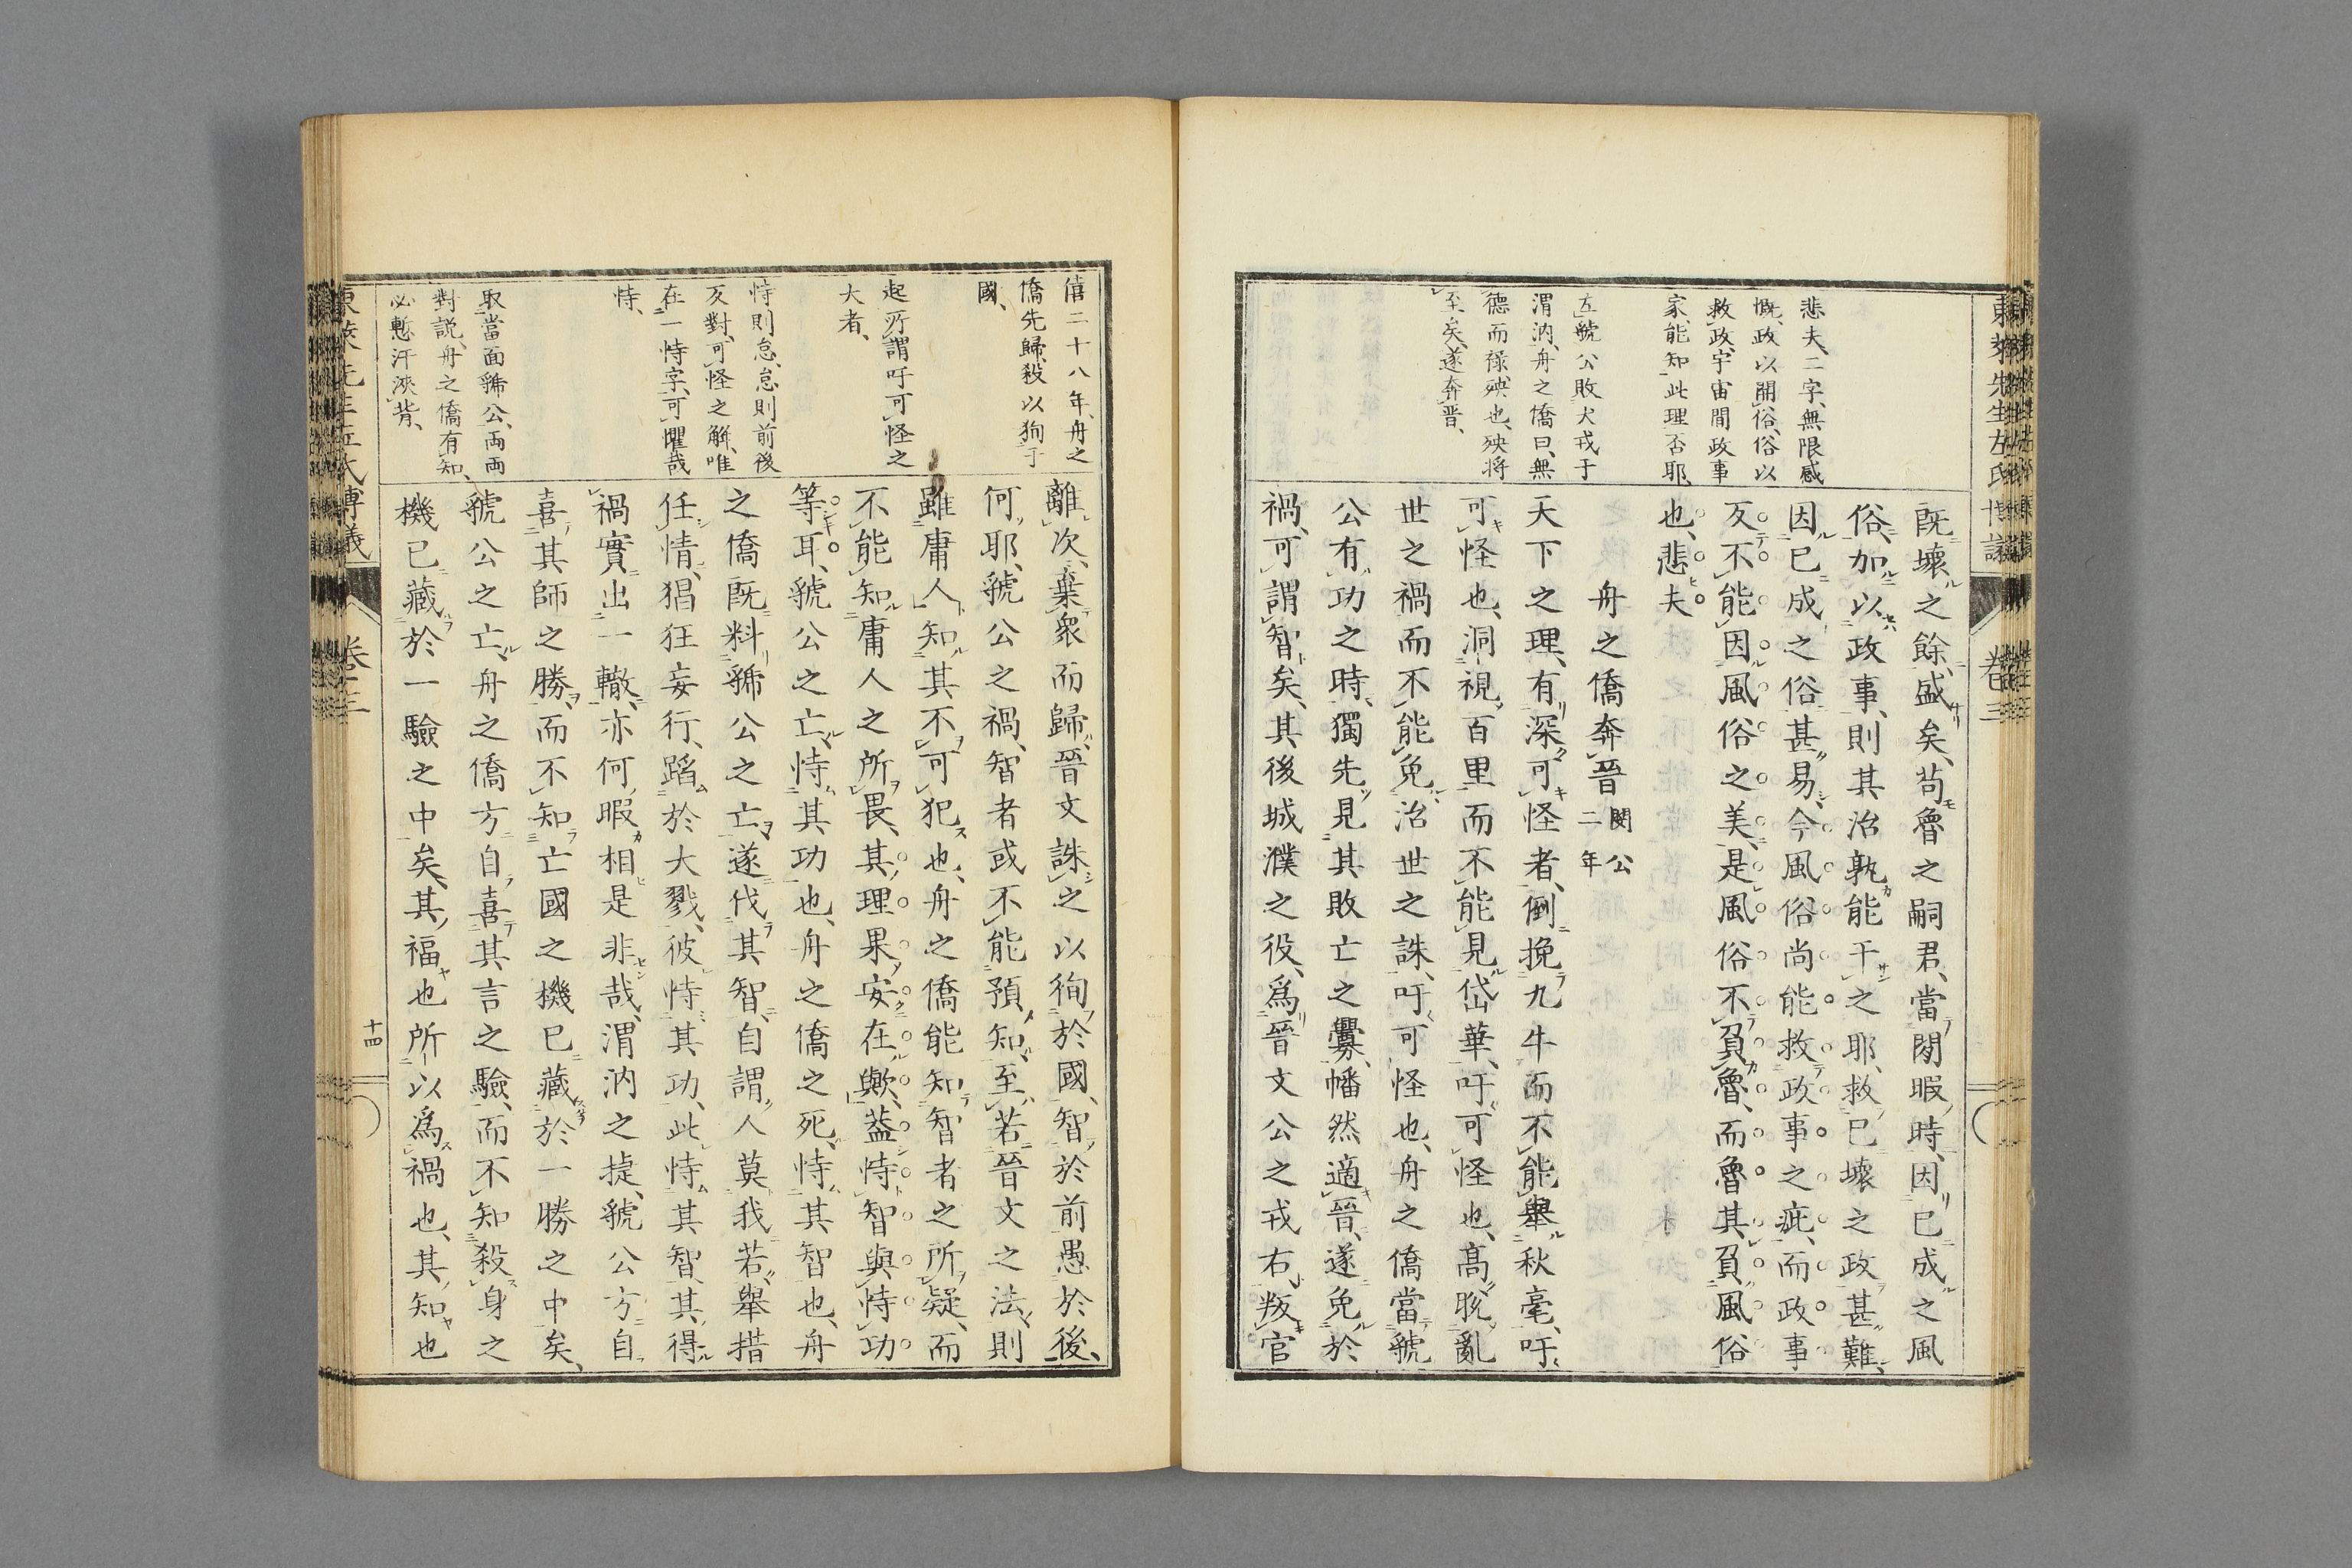 東萊先生左氏博議
卷三
悲夫、二字、無限感
慨、政以開俗、俗以
救政、宇宙間政事
家、能知此理否耶、
左虢公敗犬戎于
渭汭、舟之僑曰、無
德而祿、殃也、殃將
至矣、遂奔晉、
既壞之餘、盛矣、苟魯之嗣君、當閒暇時、因已成之風
俗、加以政事、則其治孰能干之耶、救已壞之政甚難、
因已成之俗甚易、今風俗尚能救政事之疵、而政事
反不能因風俗之美、是風俗不負魯、而魯其負風俗
也、悲夫
舟之僑奔晉
閔公
二年
天下之理、有深可怪者、倒挽九牛而不能舉秋毫、吁
可怪也、洞視百里而不能見岱華、吁可怪也、高脫亂
世之禍而不能免治世之誅、吁可怪也、舟之僑當虢
公有功之時、獨先見其敗亡之釁、幡然適晉、遂免於
禍、可謂智矣、其後城濮之役、爲晉文公之戎右、叛官
僖二十八年、舟之
僑先歸、殺以狥于
國、
起所謂吁可怪之
大者、
恃則怠、怠則前後
反對、可怪之解、唯
在一恃字、可懼哉
恃、
取當面虢公、兩兩
對説、舟之僑有知、
必慙汗浹背、
離次、棄衆而歸、晉文誅之以徇於國、智於前愚於後、
何耶、虢公之禍、智者或不能預知、至若晉文之法、則
雖庸人知其不可犯也、舟之僑能知智者之所疑、而
不能知庸人之所畏、其理果安在歟、蓋恃智與恃功
等耳、虢公之亡、恃其功也、舟之僑之死、恃其智也、舟
之僑既料虢公之亡、遂伐其智、自謂人莫我若、舉措
任情、猖狂妄行、蹈於大戮、彼恃其功、此恃其智、其得
禍實出一轍、亦何暇相是非哉、渭汭之捷、虢公方自
喜其師之勝、而不知亡國之機已藏於一勝之中矣、
虢公之亡、舟之僑方自喜其言之驗、而不知殺身之
機已藏於一驗之中矣、其福也所以爲禍也、其知也
東萊先生左氏博議
卷三
十四